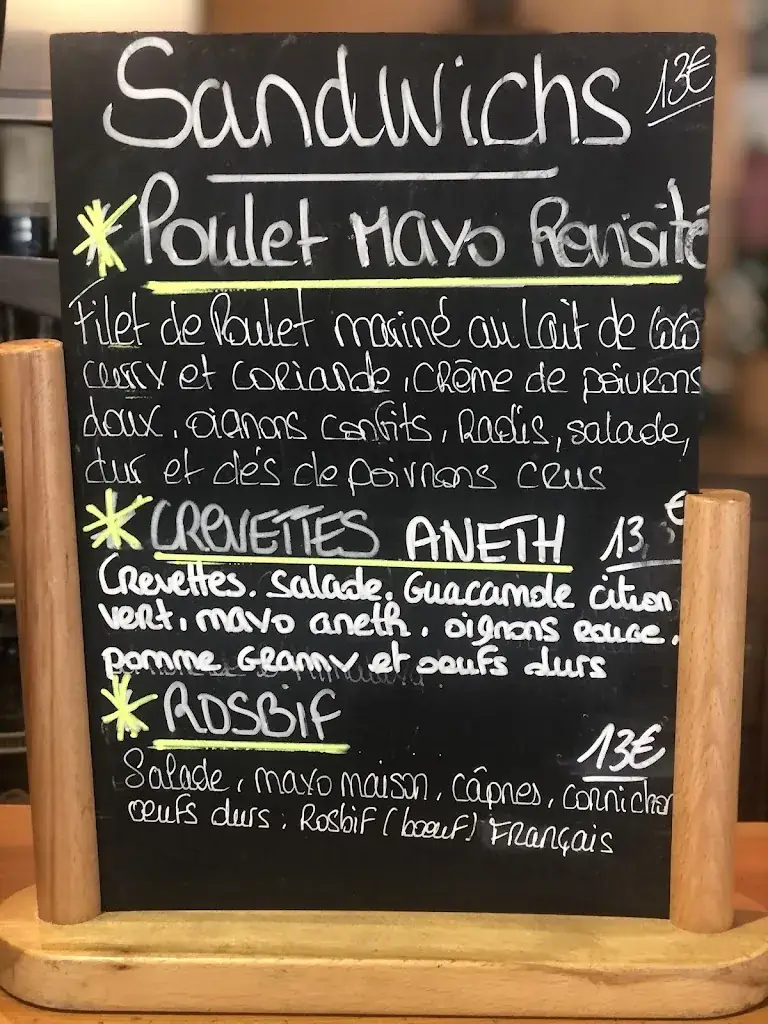 Sandwichs 13€
* Poulet Mayo Revisité
Filet de Poulet mariné au Lait de Coco
curry et coriande, crème de poivrons
doux, oignons confits, Radis, salade,
dur et dés de poivrons crus
* CREVETTES ANETH 13€
Crevettes. Salade. Guacamole citron
vert, mayo aneth, oignons rouge.
pomme Granny et oeufs durs
* ROSBIF
13€
Salade, mayo maison, câpres, cornichon
oeufs durs, Rosbif (boeuf) Français